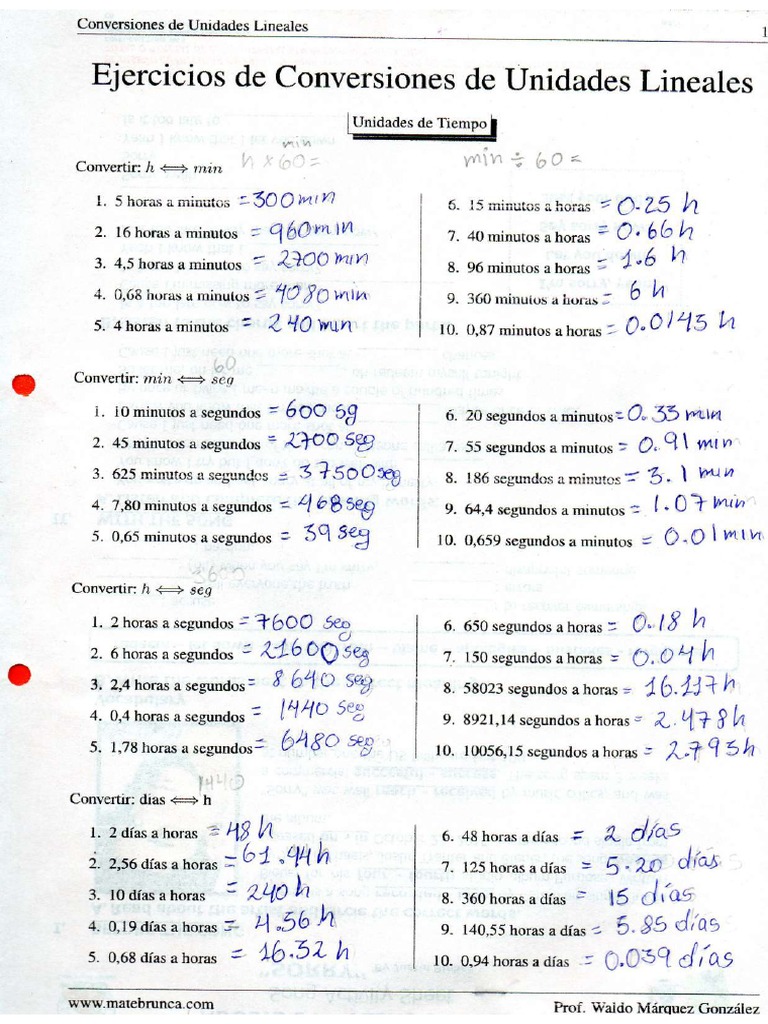 Conversiones de Unidades Lineales 1
Ejercicios de Conversiones de Unidades Lineales
Unidades de Tiempo
Convertir: h ⟺ min h × 60 = min min ÷ 60 =
1. 5 horas a minutos = 300 min
2. 16 horas a minutos = 960 min
3. 4,5 horas a minutos = 2700 min
4. 0,68 horas a minutos = 4080 min
5. 4 horas a minutos = 240 min
6. 15 minutos a horas = 0.25 h
7. 40 minutos a horas = 0.66 h
8. 96 minutos a horas = 1.6 h
9. 360 minutos a horas = 6 h
10. 0,87 minutos a horas = 0.0145 h
60
Convertir: min ⟺ seg
1. 10 minutos a segundos = 600 sg
2. 45 minutos a segundos = 2700 seg
3. 625 minutos a segundos = 37500 seg
4. 7,80 minutos a segundos = 468 seg
5. 0,65 minutos a segundos = 39 seg
6. 20 segundos a minutos = 0.33 min
7. 55 segundos a minutos = 0.91 min
8. 186 segundos a minutos = 3.1 min
9. 64,4 segundos a minutos = 1.07 min
10. 0,659 segundos a minutos = 0.01 min
Convertir: h ⟺ seg
1. 2 horas a segundos = 7600 seg
2. 6 horas a segundos = 21600 seg
3. 2,4 horas a segundos = 8640 seg
4. 0,4 horas a segundos = 1440 seg
5. 1,78 horas a segundos = 6480 seg
6. 650 segundos a horas = 0.18 h
7. 150 segundos a horas = 0.04 h
8. 58023 segundos a horas = 16.117 h
9. 8921,14 segundos a horas = 2.478 h
10. 10056,15 segundos a horas = 2.793 h
1440
Convertir: dias ⟺ h
1. 2 días a horas = 48 h
2. 2,56 días a horas = 61.44 h
3. 10 días a horas = 240 h
4. 0,19 días a horas = 4.56 h
5. 0,68 días a horas = 16.32 h
6. 48 horas a días = 2 días
7. 125 horas a días = 5.20 días
8. 360 horas a días = 15 días
9. 140,55 horas a días = 5.85 días
10. 0,94 horas a días = 0.039 días
www.matebrunca.com Prof. Waldo Márquez González